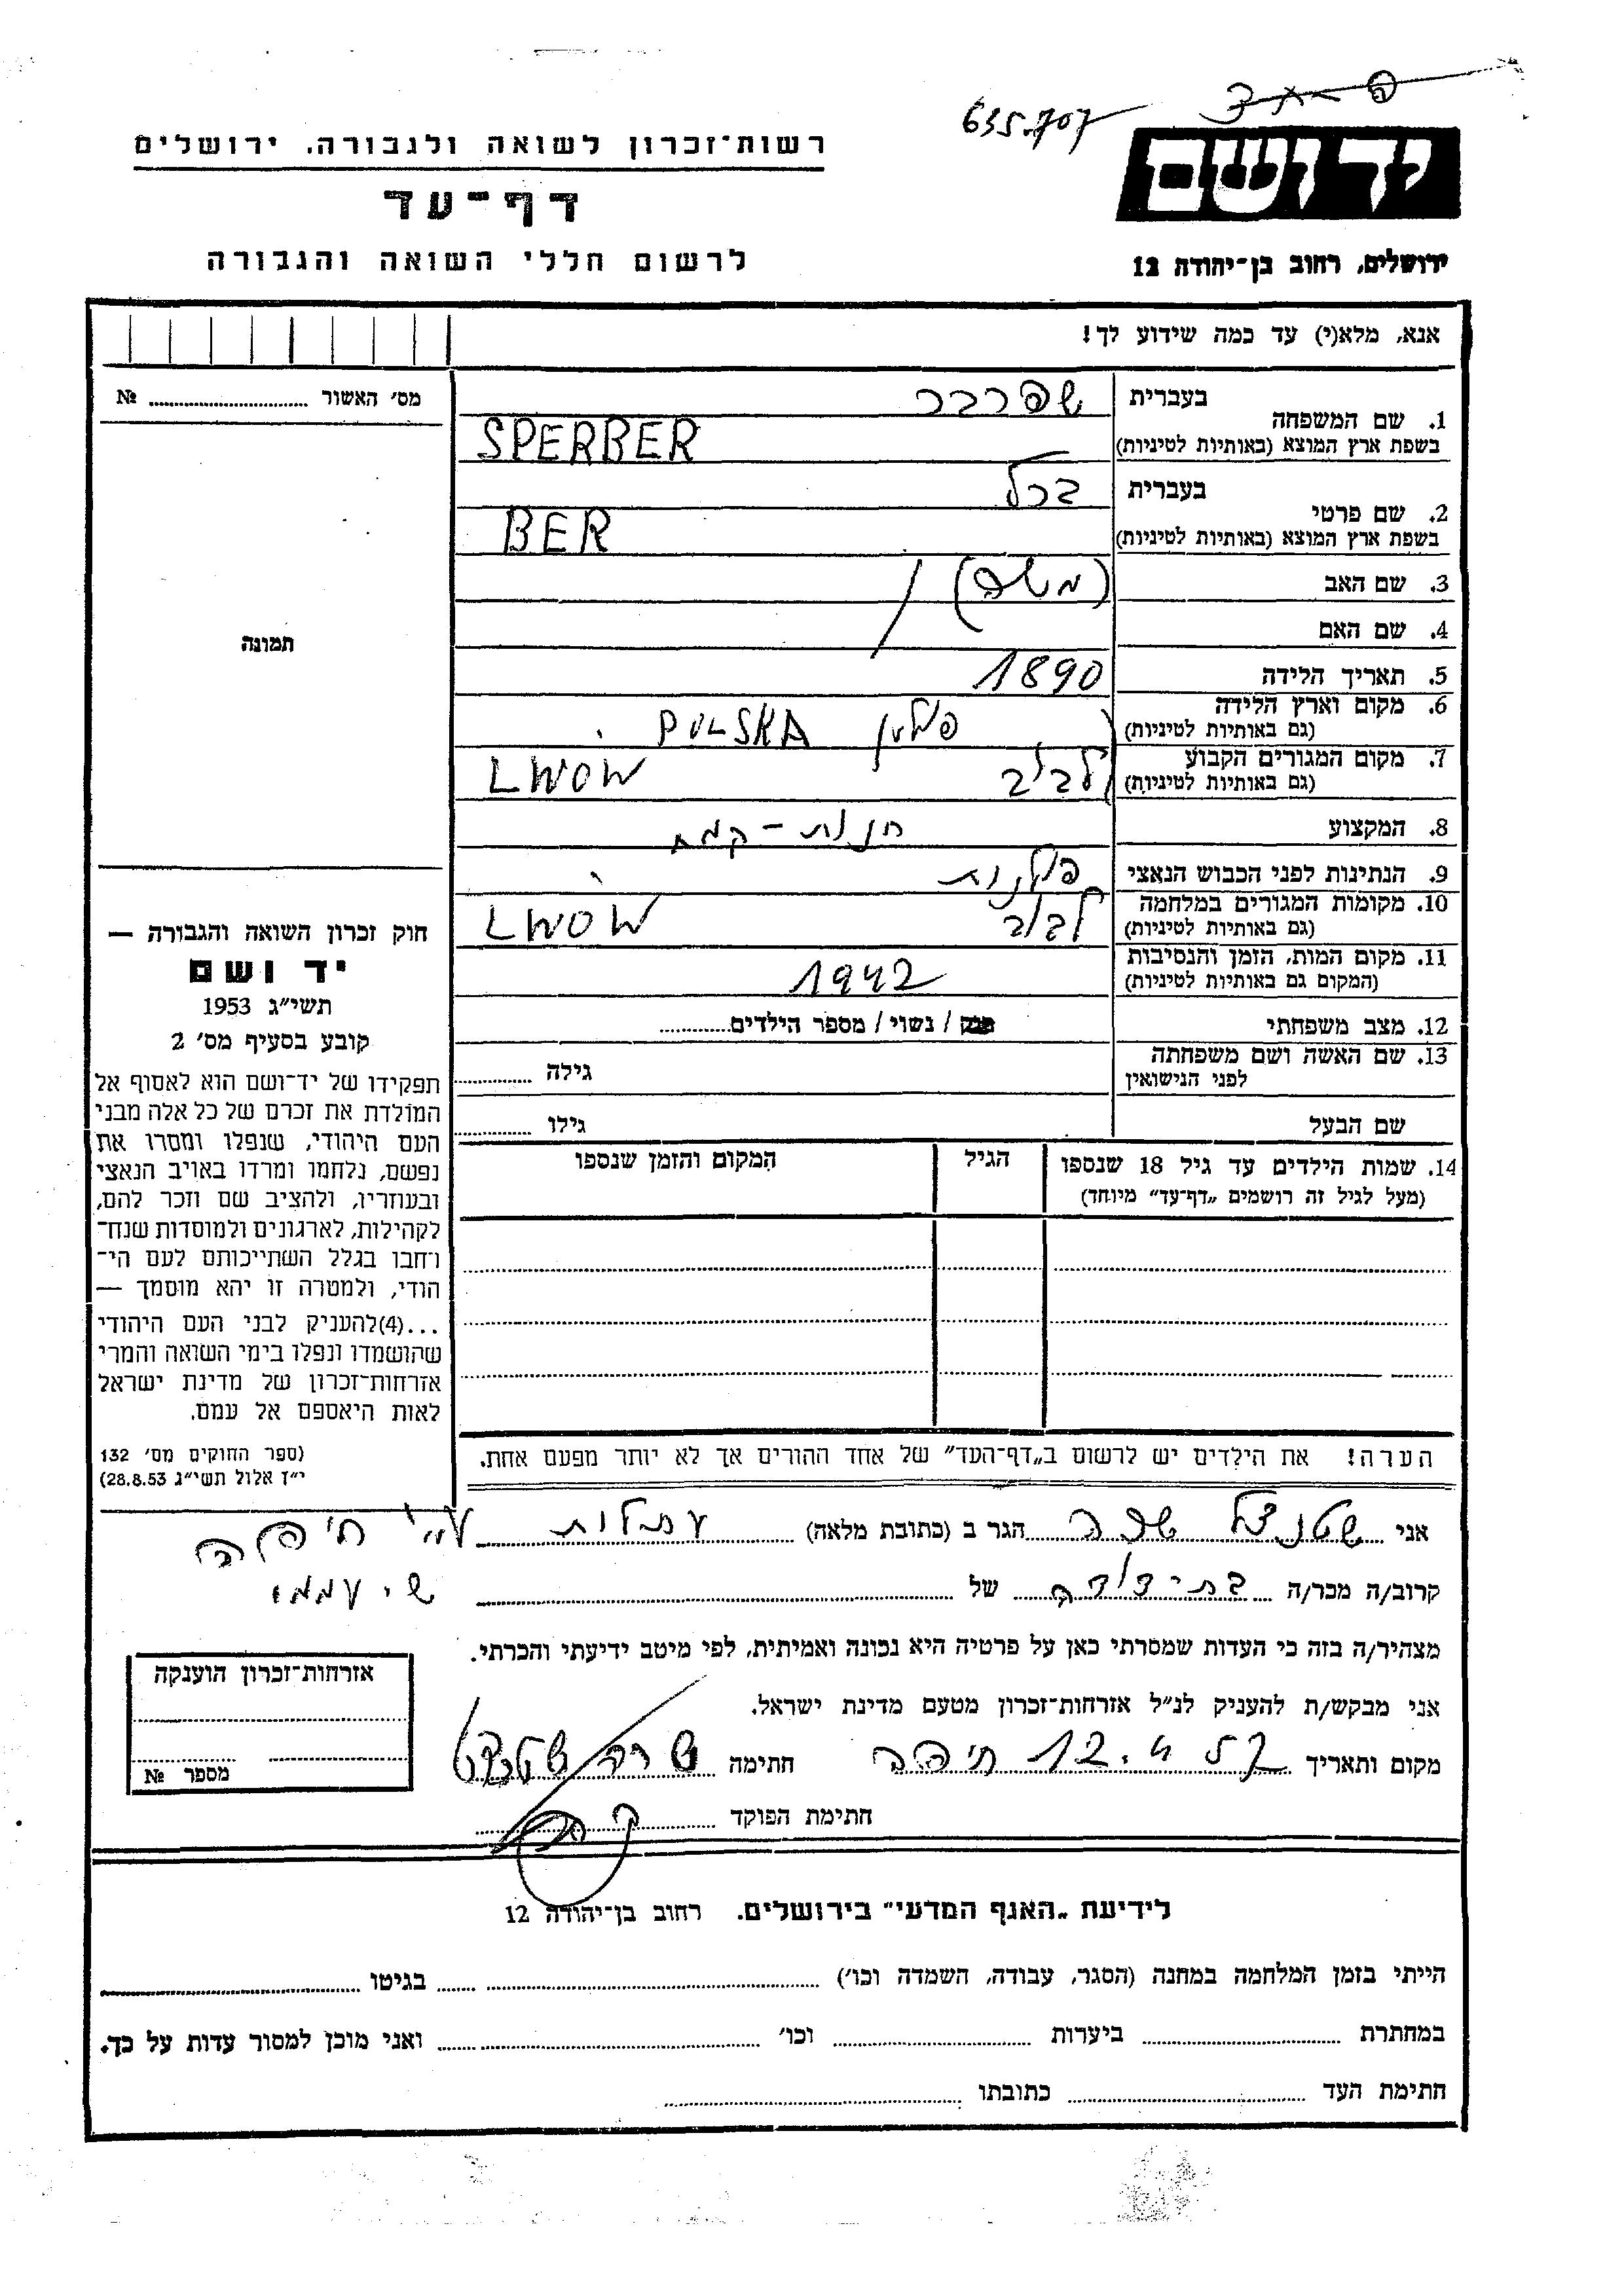 635.707
רשות־זכרון לשואה ולגבורה. ירושלים
דף־עד
לרשום חללי השואה והגבורה
יד ושם
ירושלים, רחוב בן־יהודה 12
אנא, מלא(י) עד כמה שידוע לך!
1. שם המשפחה
בעברית שפרבר
בשפת ארץ המוצא (באותיות לטיניות) SPERBER
2. שם פרטי
בעברית ברל
בשפת ארץ המוצא (באותיות לטיניות) BER
3. שם האב (משה)
4. שם האם
5. תאריך הלידה 1890
6. מקום וארץ הלידה (גם באותיות לטיניות) פולין POLSKA
7. מקום המגורים הקבוע (גם באותיות לטיניות) לבוב LWOW
8. המקצוע חנות - קמח
9. הנתינות לפני הכבוש הנאצי פולנית
10. מקומות המגורים במלחמה (גם באותיות לטיניות) לבוב LWOW
11. מקום המות, הזמן והנסיבות (המקום גם באותיות לטיניות) 1942
12. מצב משפחתי / נשוי / מספר הילדים
13. שם האשה ושם משפחתה לפני הנישואין גילה
שם הבעל גילו
14. שמות הילדים עד גיל 18 שנספו
(מעל לגיל זה רושמים „דף־עד” מיוחד)
הגיל
המקום והזמן שנספו
הערה! את הילדים יש לרשום ב„דף־העד” של אחד ההורים אך לא יותר מפעם אחת.
מס׳ האשור №
תמונה
חוק זכרון השואה והגבורה —
יד ושם
תשי״ג 1953
קובע בסעיף מס׳ 2
תפקידו של יד־ושם הוא לאסוף אל
המולדת את זכרם של כל אלה מבני
העם היהודי, שנפלו ומסרו את
נפשם, נלחמו ומרדו באויב הנאצי
ובעוזריו, ולהציב שם וזכר להם,
לקהילות, לארגונים ולמוסדות שנח־
רחבו בגלל השתייכותם לעם הי־
הודי, ולמטרה זו יהא מוסמך —
...(4)להעניק לבני העם היהודי
שהושמדו ונפלו בימי השואה והמרי
אזרחות־זכרון של מדינת ישראל
לאות היאספם אל עמם.
(ספר החוקים מס׳ 132
י״ז אלול תשי״ג 28.8.53)
אני שטנצל שרה הגר ב (כתובת מלאה) עתלית ע״י חיפה
קרוב/ה מכר/ה בת-דודה של
מצהיר/ה בזה כי העדות שמסרתי כאן על פרטיה היא נכונה ואמיתית, לפי מיטב ידיעתי והכרתי.
אני מבקש/ת להעניק לנ״ל אזרחות־זכרון מטעם מדינת ישראל.
מקום ותאריך 12.4.57 חיפה חתימה שרה
חתימת הפוקד
אזרחות־זכרון הוענקה
מספר №
לידיעת „האגף המדעי” בירושלים. רחוב בן־יהודה 12
הייתי בזמן המלחמה במחנה (הסגר, עבודה, השמדה וכו׳) בגיטו
במחתרת ביערות וכו׳ ואני מוכן למסור עדות על כך.
חתימת העד כתובתו